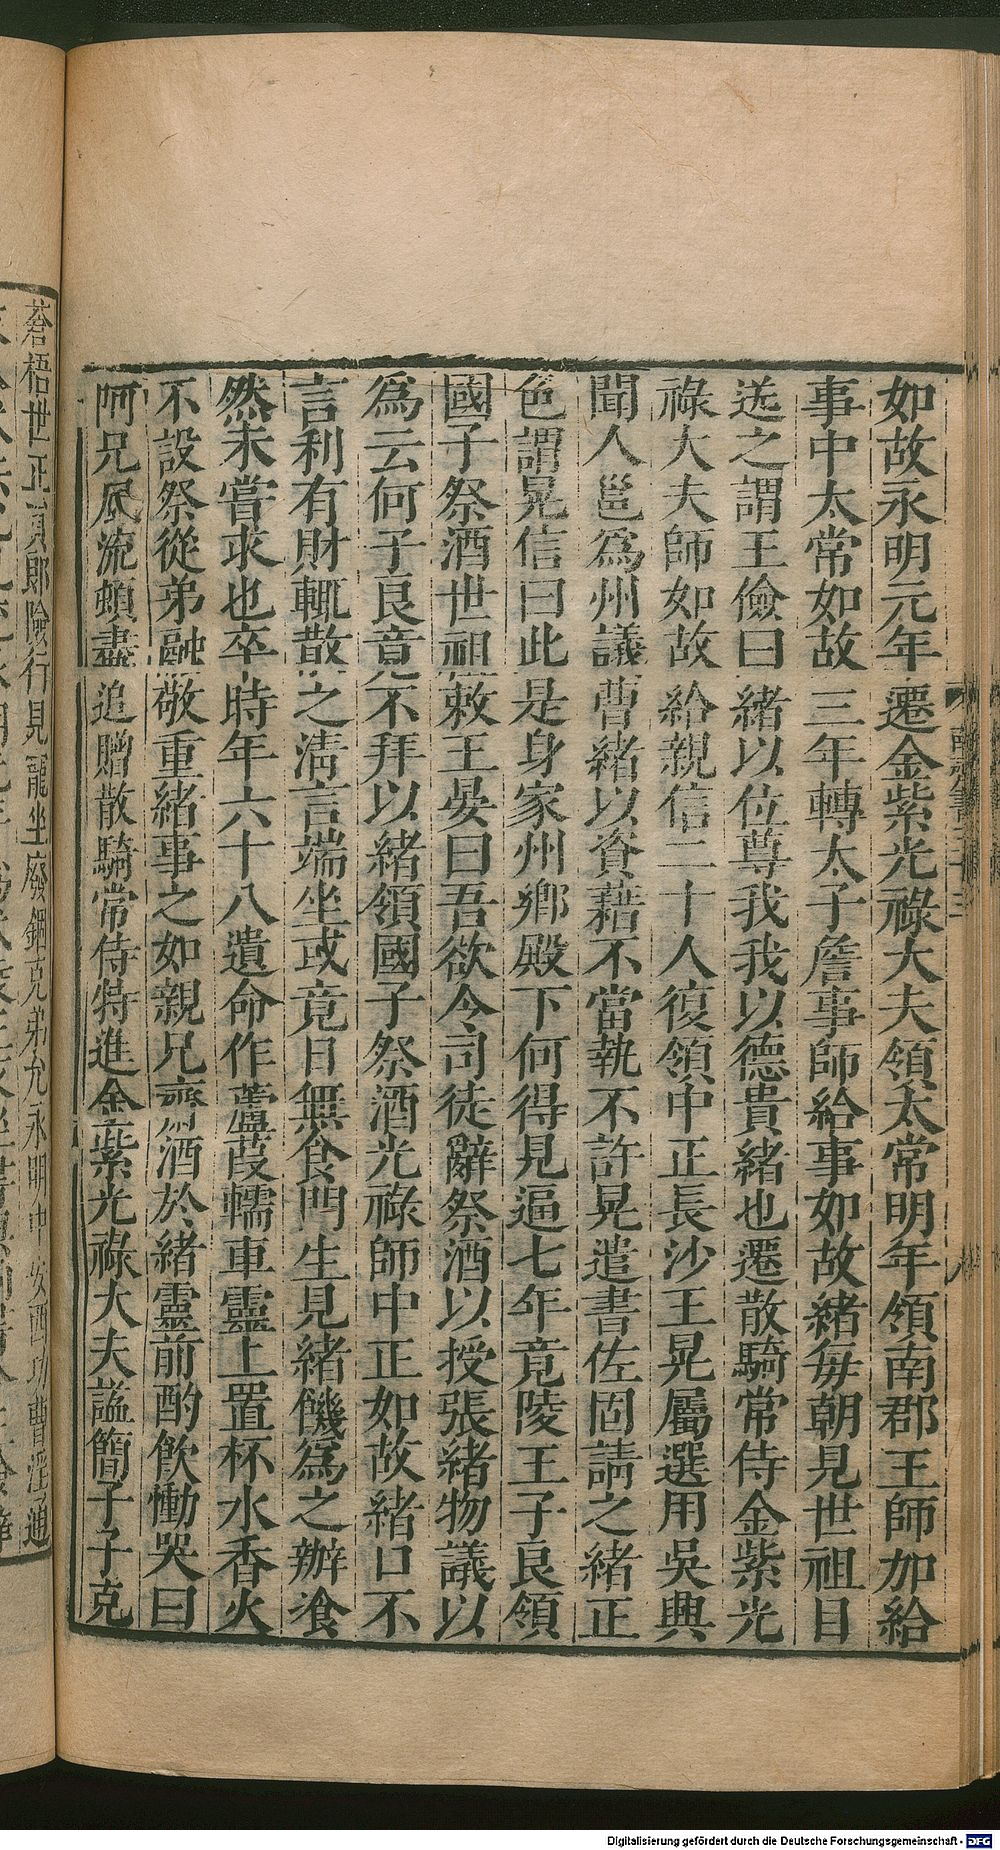 如故永明元年遷金紫光祿大夫領太常明年領南郡王師加給
事中太常如故三年轉太子詹事師給事如故緒每朝見世祖目
送之謂王儉曰緒以位尊我我以德貴緒也遷散騎常侍金紫光
祿大夫師如故給親信二十人復領中正長沙王晃屬選用吳興
聞人邕為州議曹緒以資藉不當執不許晃遣書佐固請之緒正
色謂晃信曰此是身家州鄉殿下何得見逼七年竟陵王子良領
國子祭酒世祖敕王晏曰吾欲令司徒辭祭酒以授張緒物議以
為云何子良竟不拜以緒領國子祭酒光祿師中正如故緒口不
言利有財輒散之清言端坐或竟日無食門生見緒饑為之辦飡
然未嘗求也卒時年六十八遺命作蘆葭轜車靈上置杯水香火
不設祭從弟融敬重緒事之如親兄齎酒於緒靈前酌飲慟哭曰
阿兄風流頓盡追贈散騎常侍特進金紫光祿大夫謚簡子子克
蒼梧世正員郎險行見寵坐廢錮克弟允永明中安西功曹淫通
Digitalisierung gefördert durch die Deutsche Forschungsgemeinschaft - DFG